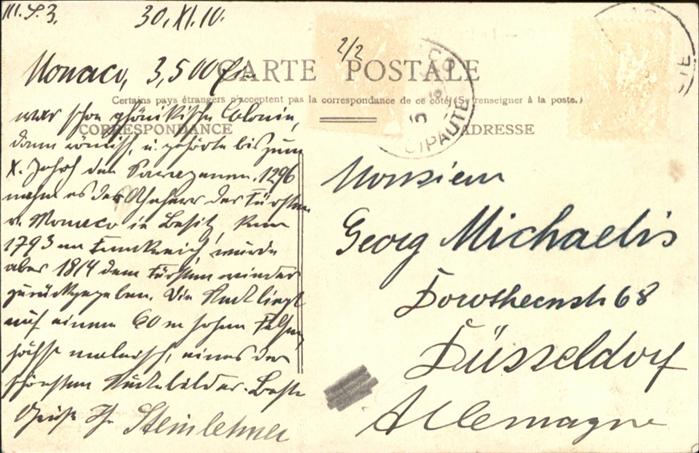 III. S. 3.
30. XI. 10.
2/2
Monaco, 3,500 Ew.
CARTE POSTALE
Certains pays étrangers n'acceptent pas la correspondance de ce côté (Se renseigner à la poste.)
CORRESPONDANCE
ADRESSE
war schon phönikische Colonie,
dann römisch, u. gehörte bis zum
X. Jahrh den Sarazenen. 1296
nahm es der Ahnherr der Fürsten
v. Monaco in Besitz, kam
1793 an Frankreich, wurde
aber 1814 dem Fürsten wieder
zurückgegeben. Die Stadt liegt
auf einem 60 m hohen Felsen,
höchst malerisch, eines der
schönsten Städtebilder. Beste
Grüße Ihr Steinlehner
Monsieur
Georg Michaelis
Dorotheenstr 68
Düsseldorf
Allemagne